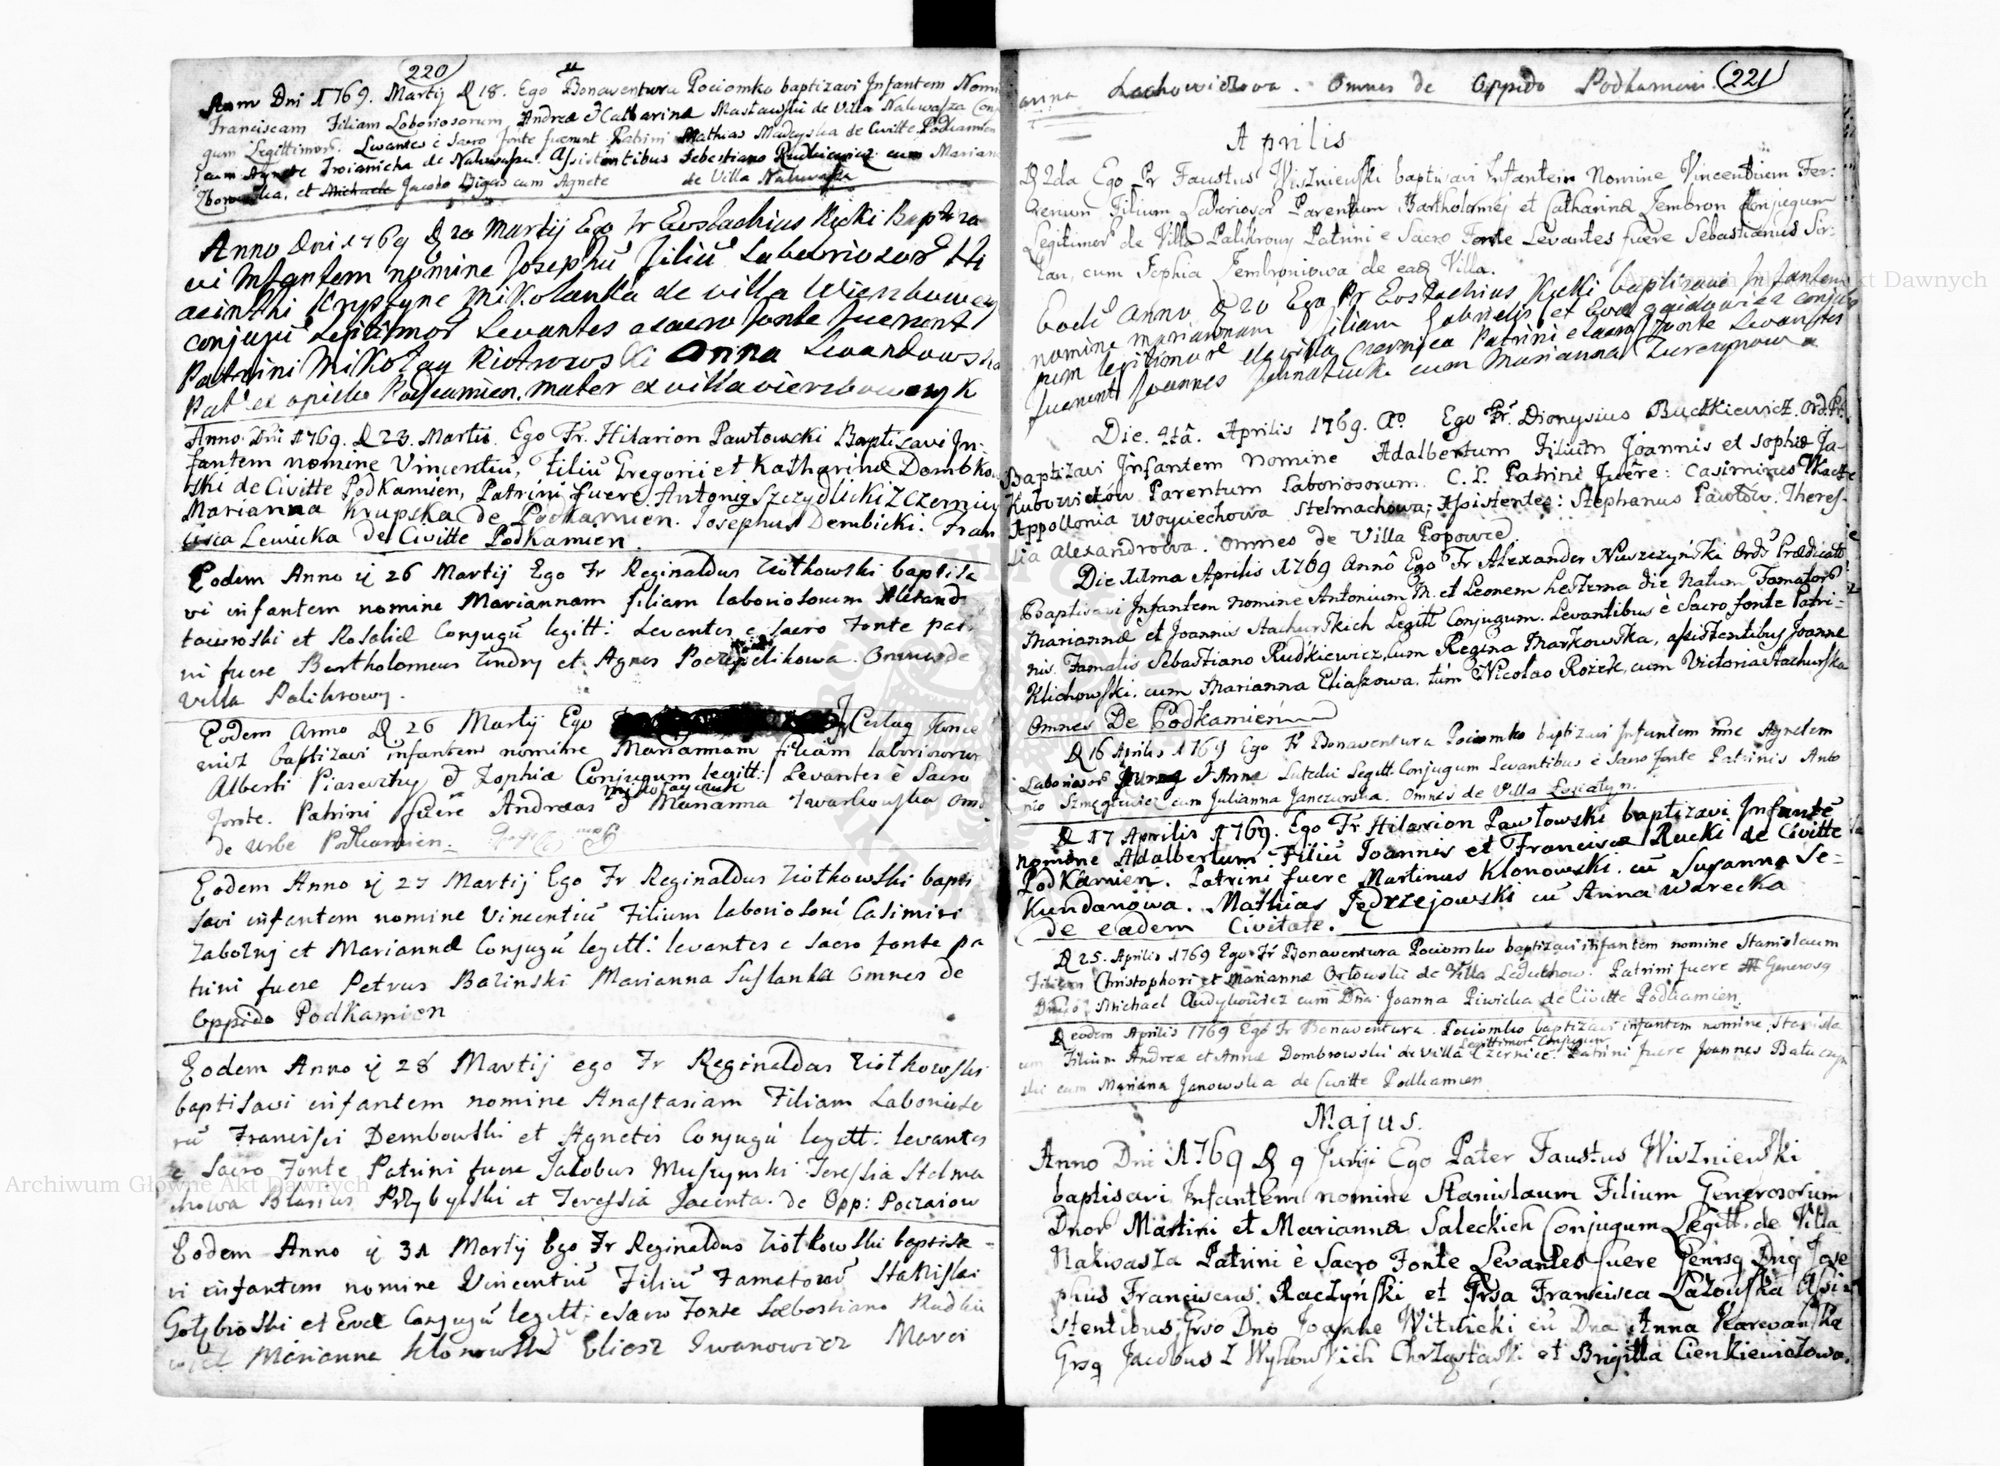 220
Anno Dni 1769. Martij D 18. Ego Fr Bonaventura Pociomko baptizavi Infantem Nomi
Franciscam Filiam Laboriosorum Andreæ et Catharinæ Masławski de Villa Nakwasza Con
gum Legittimor. Levantes è Sacro fonte fuerunt Patrini Mathias de Civitte Podkamien
cum Agnete de Nakwasza. Assistentibus Sebestiano Rudkiewicz cum Marian
et Michaele Jacobo cum Agnete de Villa Nakwasza
Anno Dni 1769 D 20 Martij Ego Fr Eustachius Rucki Baptiza
vi Infantem nomine Josephū Filiū Laboriosor Hi
acinthi Krystyne Mikolanka de villa Wierzbowey
conjugū Legitimor Levantes e sacro fonte fuerunt
Patrini Mikolay Piotrowski Anna Levandowska
Pat ex opido Podkamien, mater ex villa vierzbowczyk
Anno Dni 1769. D 23. Martii. Ego Fr. Hilarion Pawłowski Baptizavi In:
fantem nomine Vincentiū, Filiū Gregorii et Katharinæ Dombko
ski de Civitte Podkamien, Patrini fuere Antonig Szczydlicki z Czernicy
Marianna Krupska de Podkamien. Josephus Dembicki: Fran
cisca Lewicka de Civitte Podkamien.
Eodem Anno D 26 Martij Ego Fr Reginaldus Ziółkowski baptisa
vi infantem nomine Mariannam filiam laboriosorum Alexand
et Rosaliæ Conjugū legitt: Levantes e Sacro Fonte patri
ni fuere Bartholomeus Undry et Agnes Omnes de
Villa Palikrowy.
Eodem Anno D 26 Martij Ego Fr Ceslag
baptizavi infantem nomine Mariannam filiam laboriosorum
Alberti et Zophiæ Conjugum legitt: Levantes è Sacro
fonte. Patrini fuere Andreas Mikołayczuk et Marianna Twarkowska omn
de Urbe Podkamien.
Eodem Anno D 27 Martij Ego Fr Reginaldus Ziółkowski bapti
savi infantem nomine Vincentiū Filium laboriosorū Casimiri
Zabołny et Mariannæ Conjugū legitt: levantes e Sacro fonte pa
trini fuere Petrus Balinski Marianna Suslanka Omnes de
Oppido Podkamien
Eodem Anno D 28 Martij ego Fr Reginaldus Ziółkowski
baptisavi infantem nomine Anastasiam Filiam Laborioso
rū Francisci Dembowski et Agnetis Conjugū legitt: levantes
e Sacro Fonte Patrini fuere Jacobus Muszynski Teressia Stelma
chowa Blasius Przybylski et Teressia Jacenta. de Opp: Poczaiow
Eodem Anno D 31 Martij Ego Fr Reginaldus Ziółkowski baptisa
vi infantem nomine Vincentiū Filiū Famatorū Stanislai
Gołębioski et Evæ Conjugū legitt: e Sacro Fonte Sebastiano Rudkie
Marianna Klonowska Eliasz Iwanowicz Marci
221
anna Lachowiczowa. Omnes de Oppido Podkamien.
Aprilis
D 2da Ego Pr Faustus Wiszniewski baptisavi Infantem Nomine Vincentium Fer:
rerium Filium Laboriosor Parentum Bartholomej et Catharinæ Zembron Conjugum
Legitimor de Villa Palikrowy Patrini e Sacro Fonte Levantes fuere Sebastianus
cum Sophia Zembroniowa de ead Villa.
Eodē anno D 20 Ego Pr Eustachius Rucki baptizavi Infantem
nomine mariannam Filiam Gabrielis et Evæ gaidowicz conju
gum legitimorē de villa Czernica Patrini e sacro fonte Levantes
fuerunt Joannes cum Marianna
Die. 4tâ. Aprilis 1769. Aº. Ego Fr. Dionysius Buczkiewicz. Ord. Pr.
Baptizavi Infantem nomine Adalbertum Filium Joannis et Sophiæ Ja-
kubowiczów Parentum Laboriosorum. C. L. Patrini fuêre: Casimirus
Appollonia Woyciechowa Stelmachowa; Assistentes: Stephanus Pawłow. Theres-
sia Alexandrowa. Omnes de Villa Popowce
Die 11ma Aprilis 1769 Annô Ego Fr Alexander Niwszczyński Ords Prædicato
Baptisavi Infantem nomine Antonium M. et Leonem hesterna die natum Famatorū
Mariannæ et Joannis Stachurskich Legitt Conjugum. Levantibus è Sacro fonte Patri:
nis. Famatis Sebastiano Rudkiewicz, cum Regina Markowska, assistentibus Joanne
Klichowski, cum Marianna Eliaszowa. tùm Nicolao Rożek, cum Victoria Stachurska
Omnes De Podkamień
D 16 Aprilis 1769 Ego Fr Bonaventura Pociomko baptizavi Infantem nme Agnetem
Laboriosor et Annæ Lutecki Legitt. Conjugum Levantibus è Sacro fonte Patrinis Anto
nio cum Julianna Janczurska. Omnes de Villa
D 17 Aprilis 1769. Ego Fr Hilarion Pawłowski baptizavi Infantē
nomine Adalbertum Filiū Joannis et Franciscæ Rucki de Civitte
Podkamień. Patrini fuere Martinus Klonowski. cū Susanna Se=
kundanowa. Mathias Jędrzejowski cū Anna Warecka
de eadem Civitate.
D 25. Aprilis 1769 Ego Fr Bonaventura Pociomko baptizavi infantem nomine Stanislaum
Filium Christophori et Mariannæ Orłowski de Villa Leduchow. Patrini fuere Generosg
Michael Audykowicz cum Dna Joanna Piwicka de Civitte Podkamien.
D eodem Aprilis 1769 Ego Fr Bonaventura Pociomko baptizavi infantem nomine Stanisla
um Filium Andreæ et Annæ Dombrowski de Villa Czernice. Legittimor Conjugum Patrini fuere Joannes Batuczyn
ski cum Mariana Janowska de Civitte Podkamien
Majus.
Anno Dni 1769 D 9 Ego Pater Faustus Wiszniewski
baptisavi Infantem nomine Stanislaum Filium Generosorum
Dnor Martini et Mariannæ Saleckich Conjugum Legitt. de Villa
Nakwasza Patrini è Sacro Fonte Levantes fuere Gensg Dng Jose
phus Franciscus Raczyński et Grsa Francisca Lazowska Assi
stentibus Grso Dno Joanne Witwicki cū Dna Anna Karwańska
Grsg Jacobus z Wychowskich Chrząstaski et Brigitta Cienkiewiczowa.
Archiwum Główne Akt Dawnych
Archiwum Główne Akt Dawnych